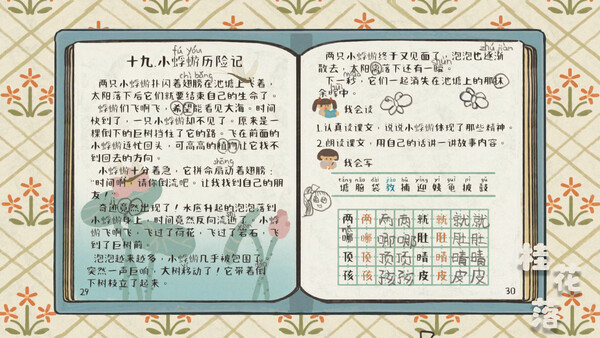 fú yóu
十九.小蜉蝣历险记
chì bǎng
两只小蜉蝣扑闪着翅膀在池塘上飞着，
太阳落下后它们就要结束自己的生命了。
蜉蝣们飞啊飞，希望能看见大海。时间
快到了，一只小蜉蝣却不见了。原来是一
棵倒下的巨树挡住了它的路。飞在前面的
小蜉蝣连忙回头，可高高的植物让它找不
到回去的方向。
shān
小蜉蝣十分着急，它拼命扇动着翅膀：
“时间啊，请你倒流吧。让我找到自己的朋
友！”
奇迹竟然出现了！水底升起的泡泡落到
小蜉蝣身上，时间竟然反向流逝。小蜉
蝣飞啊飞，飞过了荷花，飞过了岩石，飞
到了巨树前。
泡泡越来越多，小蜉蝣几乎被包围了。
突然一声巨响，大树移动了！它带着倒
下树枝立了起来。
29
zhú jiàn
两只小蜉蝣终于又见面了，泡泡也逐渐
散去，太阳落下还有一瞬。
shùn
下一秒，它们一起消失在池塘上的那抹
余晖中。
我会读
1.认真读课文，说说小蜉蝣体现了那些精神。
2.朗读课文，用自己的话讲一讲故事内容。
我会写
táng nǎo dài jiào bǔ yíng yí guī pī gǔ
塘 脑 袋 教 捕 迎 姨 龟 披 鼓
两 两 两 两 就 就 就 就
哪 哪 哪 哪 肚 肚 肚 肚
顶 顶 顶 顶 晴 晴 晴 晴
孩 孩 孩 孩 皮 皮 皮 皮
30
桂花落